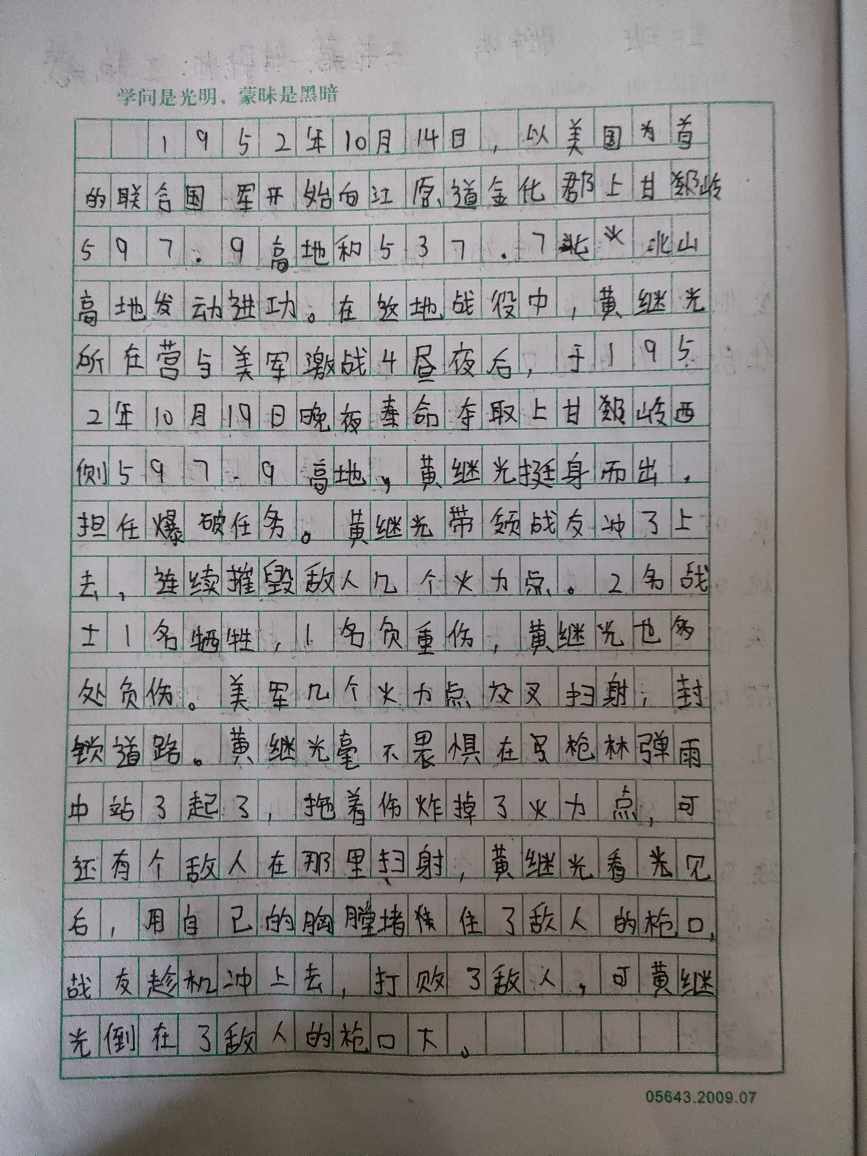 学问是光明，蒙昧是黑暗
1952年10月14日，以美国为首
的联合国军开始向江原道金化郡上甘岭
597.9高地和537.7北山
高地发动进功。在地战役中，黄继光
所在营与美军激战4昼夜后，于195
2年10月19日晚夜奉命夺取上甘岭西
侧597.9高地，黄继光挺身而出，
担任爆破任务。黄继光带领战友冲了上
去，连续摧毁敌人几个火力点。2名战
士1名牺牲，1名负重伤，黄继光也多
处负伤。美军几个火力点交叉扫射，封
锁道路。黄继光毫不畏惧在枪林弹雨
中站了起了，拖着伤炸掉了火力点，可
还有个敌人在那里扫射，黄继光看见
后，用自己的胸膛堵住了敌人的枪口，
战友趁机冲上去，打败了敌人，可黄继
光倒在了敌人的枪口下。
05643.2009.07